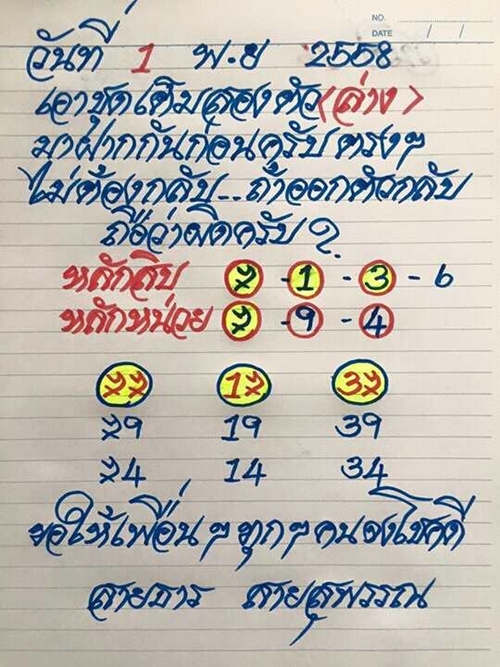 NO.
DATE / /
วันที่ 1 พ.ย 2558
เอาชุดเต็มสองตัว<ล่าง>
มาฝากกันก่อนครับ ตรงๆ
ไม่ต้องกลับ.. ถ้าออกตัวกลับ
ถือว่าผิดครับ ?
หลักสิบ 2 - 1 - 3 - 6
หลักหน่วย 2 - 9 - 4
22 12 32
29 19 39
24 14 34
ขอให้เพื่อน ๆ ทุก ๆ คน จงโชคดี
สายธาร สายสุพรรณ